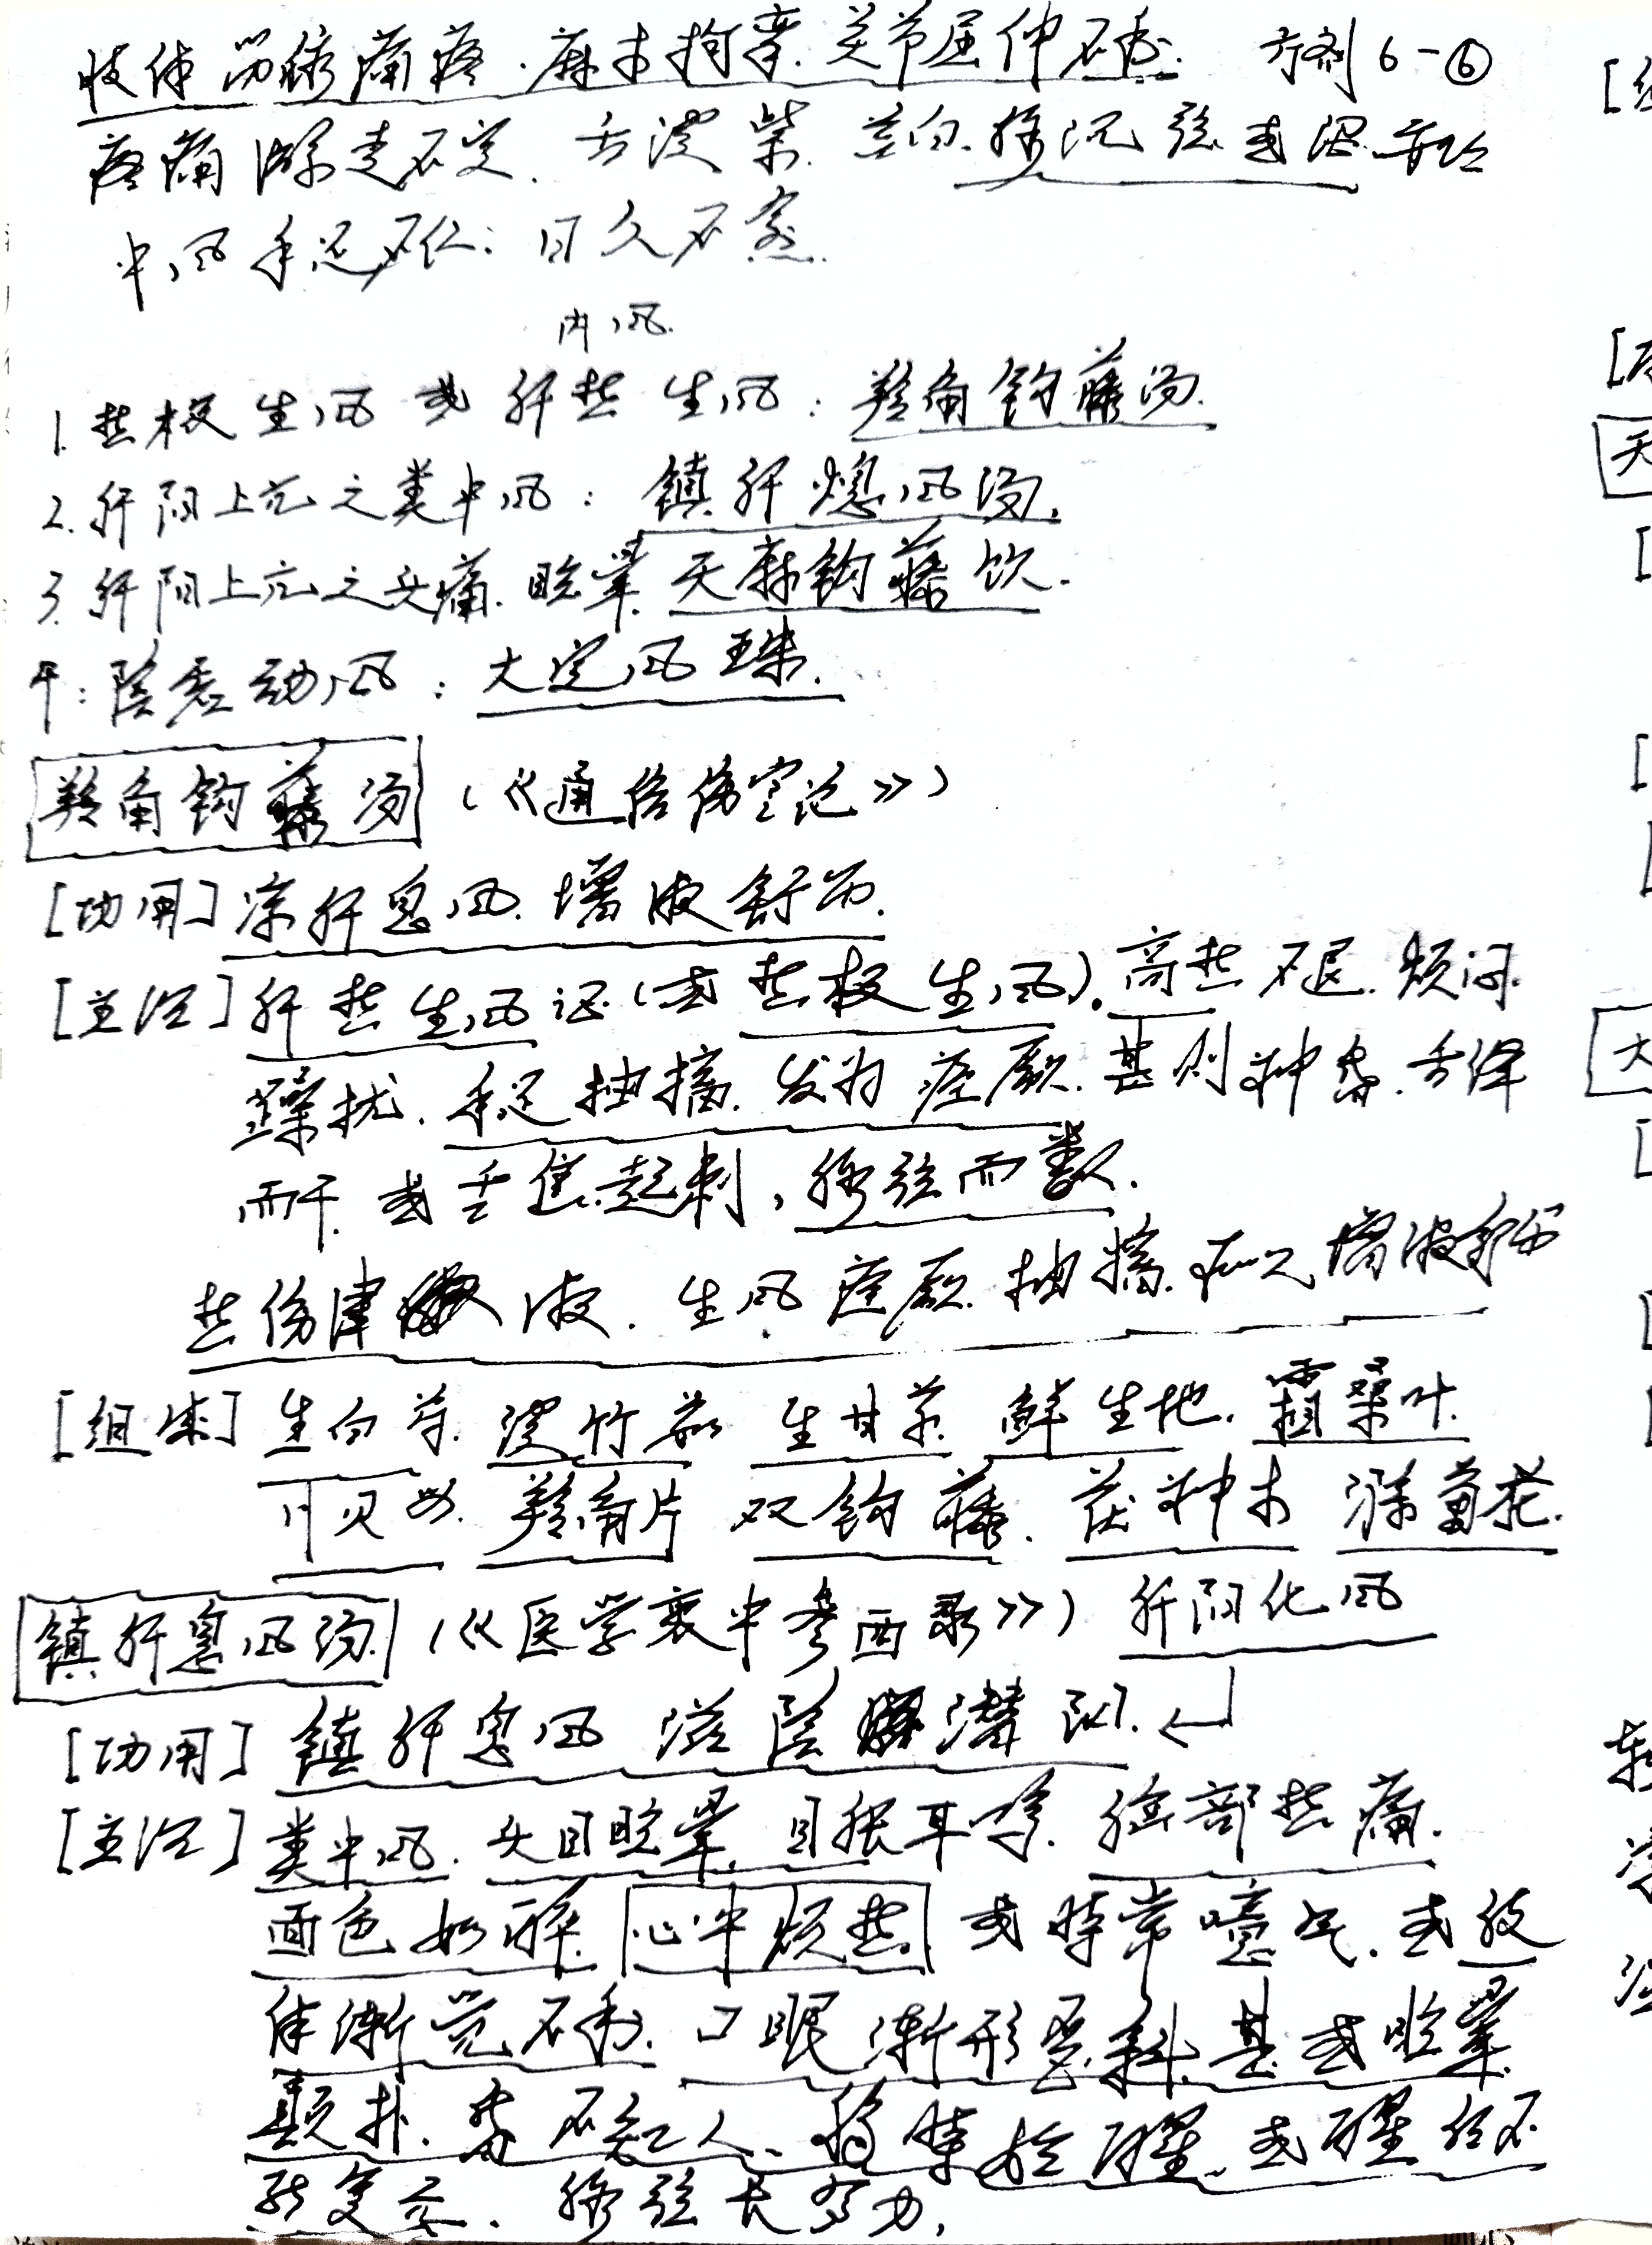 肢体筋脉痛疼.麻木拘挛.关节屈伸不利. 方剂6-⑥
疼痛游走不定. 舌淡紫. 苔白. 脉沉弦或涩. 亦治
中风手足不仁: 日久不愈.
内风.
1. 热极生风或肝热生风: 羚角钩藤汤.
2. 肝阳上亢之类中风: 镇肝熄风汤.
3. 肝阳上亢之头痛. 眩晕. 天麻钩藤饮.
4: 陰虚动风: 大定风珠.
羚角钩藤汤 (《通俗伤寒论》)
[功用] 凉肝息风. 增液舒筋.
[主治] 肝热生风证(或热极生风). 高热不退. 烦闷.
躁扰. 手足抽搐. 发为痉厥. 甚则神昏. 舌绛
而干. 或舌焦起刺, 脉弦而数.
热伤津液. 生风痉厥. 抽搐. 增液舒筋
[组成] 生白芍. 淡竹茹 生甘草. 鲜生地. 霜桑叶.
川贝母. 羚角片 双钩藤. 茯神木 滁菊花.
镇肝息风汤 (《医学衷中参西录》) 肝阳化风
[功用] 镇肝息风 滋陰潜阳. ←
[主治] 类中风. 头目眩晕. 目胀耳鸣. 脑部热痛.
面色如醉. 心中烦热. 或时常噫气. 或肢
体渐觉不利. 口眼渐形歪斜. 甚或眩晕.
颠扑. 昏不知人. 移时始醒. 或醒后不
能复元. 脉弦长有力,
[组
[
天
[
[
[
大
[
[